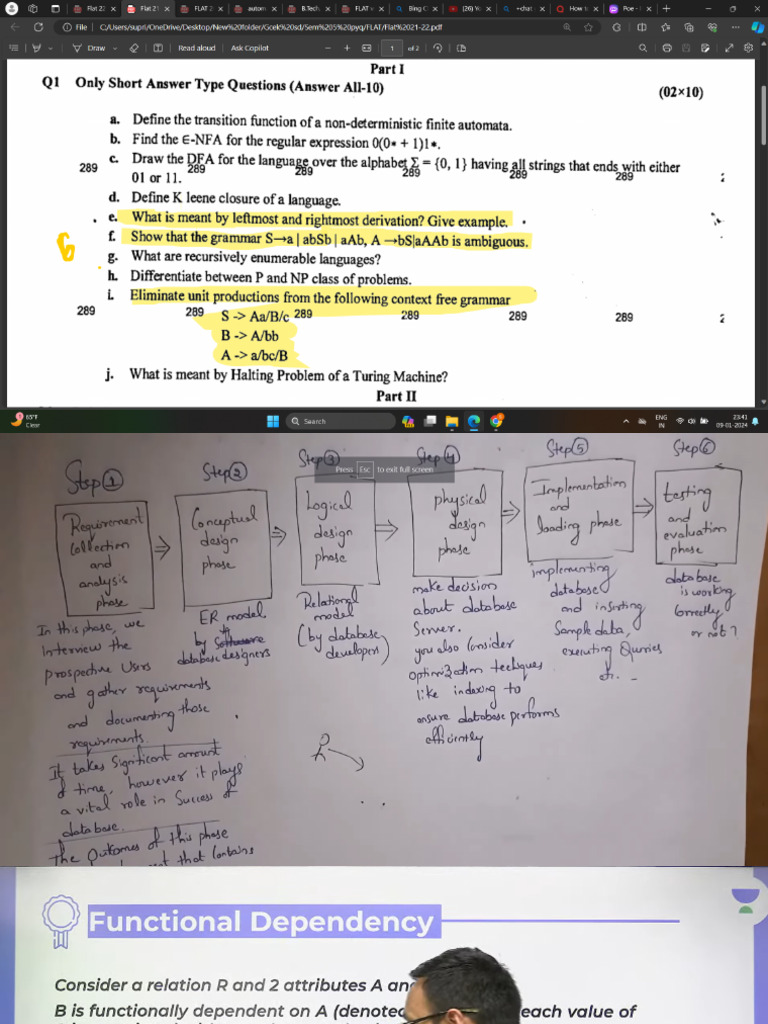 Flat 22
Flat 21
FLAT 2
autom
B.Tech.
FLAT
Bing C
(26) Yo
+chat
How to
Poe -
File
C:/Users/supri/OneDrive/Desktop/New%20folder/Gcek%20sd/Sem%205%20pyq/FLAT/Flat%2021-22.pdf
Draw
Read aloud
Ask Copilot
1
of 2
Part I
Q1 Only Short Answer Type Questions (Answer All-10)
(02×10)
a. Define the transition function of a non-deterministic finite automata.
b. Find the ∈-NFA for the regular expression 0(0* + 1)1*.
c. Draw the DFA for the language over the alphabet Σ = {0, 1} having all strings that ends with either
289 289 289 289 289 289
01 or 11.
d. Define K leene closure of a language.
e. What is meant by leftmost and rightmost derivation? Give example.
f. Show that the grammar S→a | abSb | aAb, A →bS|aAAb is ambiguous.
g. What are recursively enumerable languages?
h. Differentiate between P and NP class of problems.
i. Eliminate unit productions from the following context free grammar
289 289 289 289 289 289
S -> Aa/B/c
B -> A/bb
A -> a/bc/B
j. What is meant by Halting Problem of a Turing Machine?
Part II
65°F
Clear
Search
ENG
IN
23:41
09-01-2024
Press Esc to exit full screen
Step 1
Requirement
Collection
and
analysis
phase
In this phase, we
Interview the
prospective Users
and gather requirements
and documenting those
requirements.
It takes Significant amount
of time, however it plays
a vital role in Success of
database.
the Outcomes of this phase
that Contains
Step 2
Conceptual
design
phase
ER model.
by Software
database designers
Step 3
Logical
design
phase
Relational
model
(by database
developers)
Step 4
physical
design
phase
make decision
about database
Server.
you also Consider
Optimization techiques
like indexing to
ensure database performs
efficiently
Step 5
Implementation
and
loading phase
implementing
database
and inserting
Sample data,
executing Qurries
etc.
Step 6
testing
and
evaluation
phase
database
is working
Correctly
or not?
Functional Dependency
Consider a relation R and 2 attributes A an
B is functionally dependent on A (denoted each value of